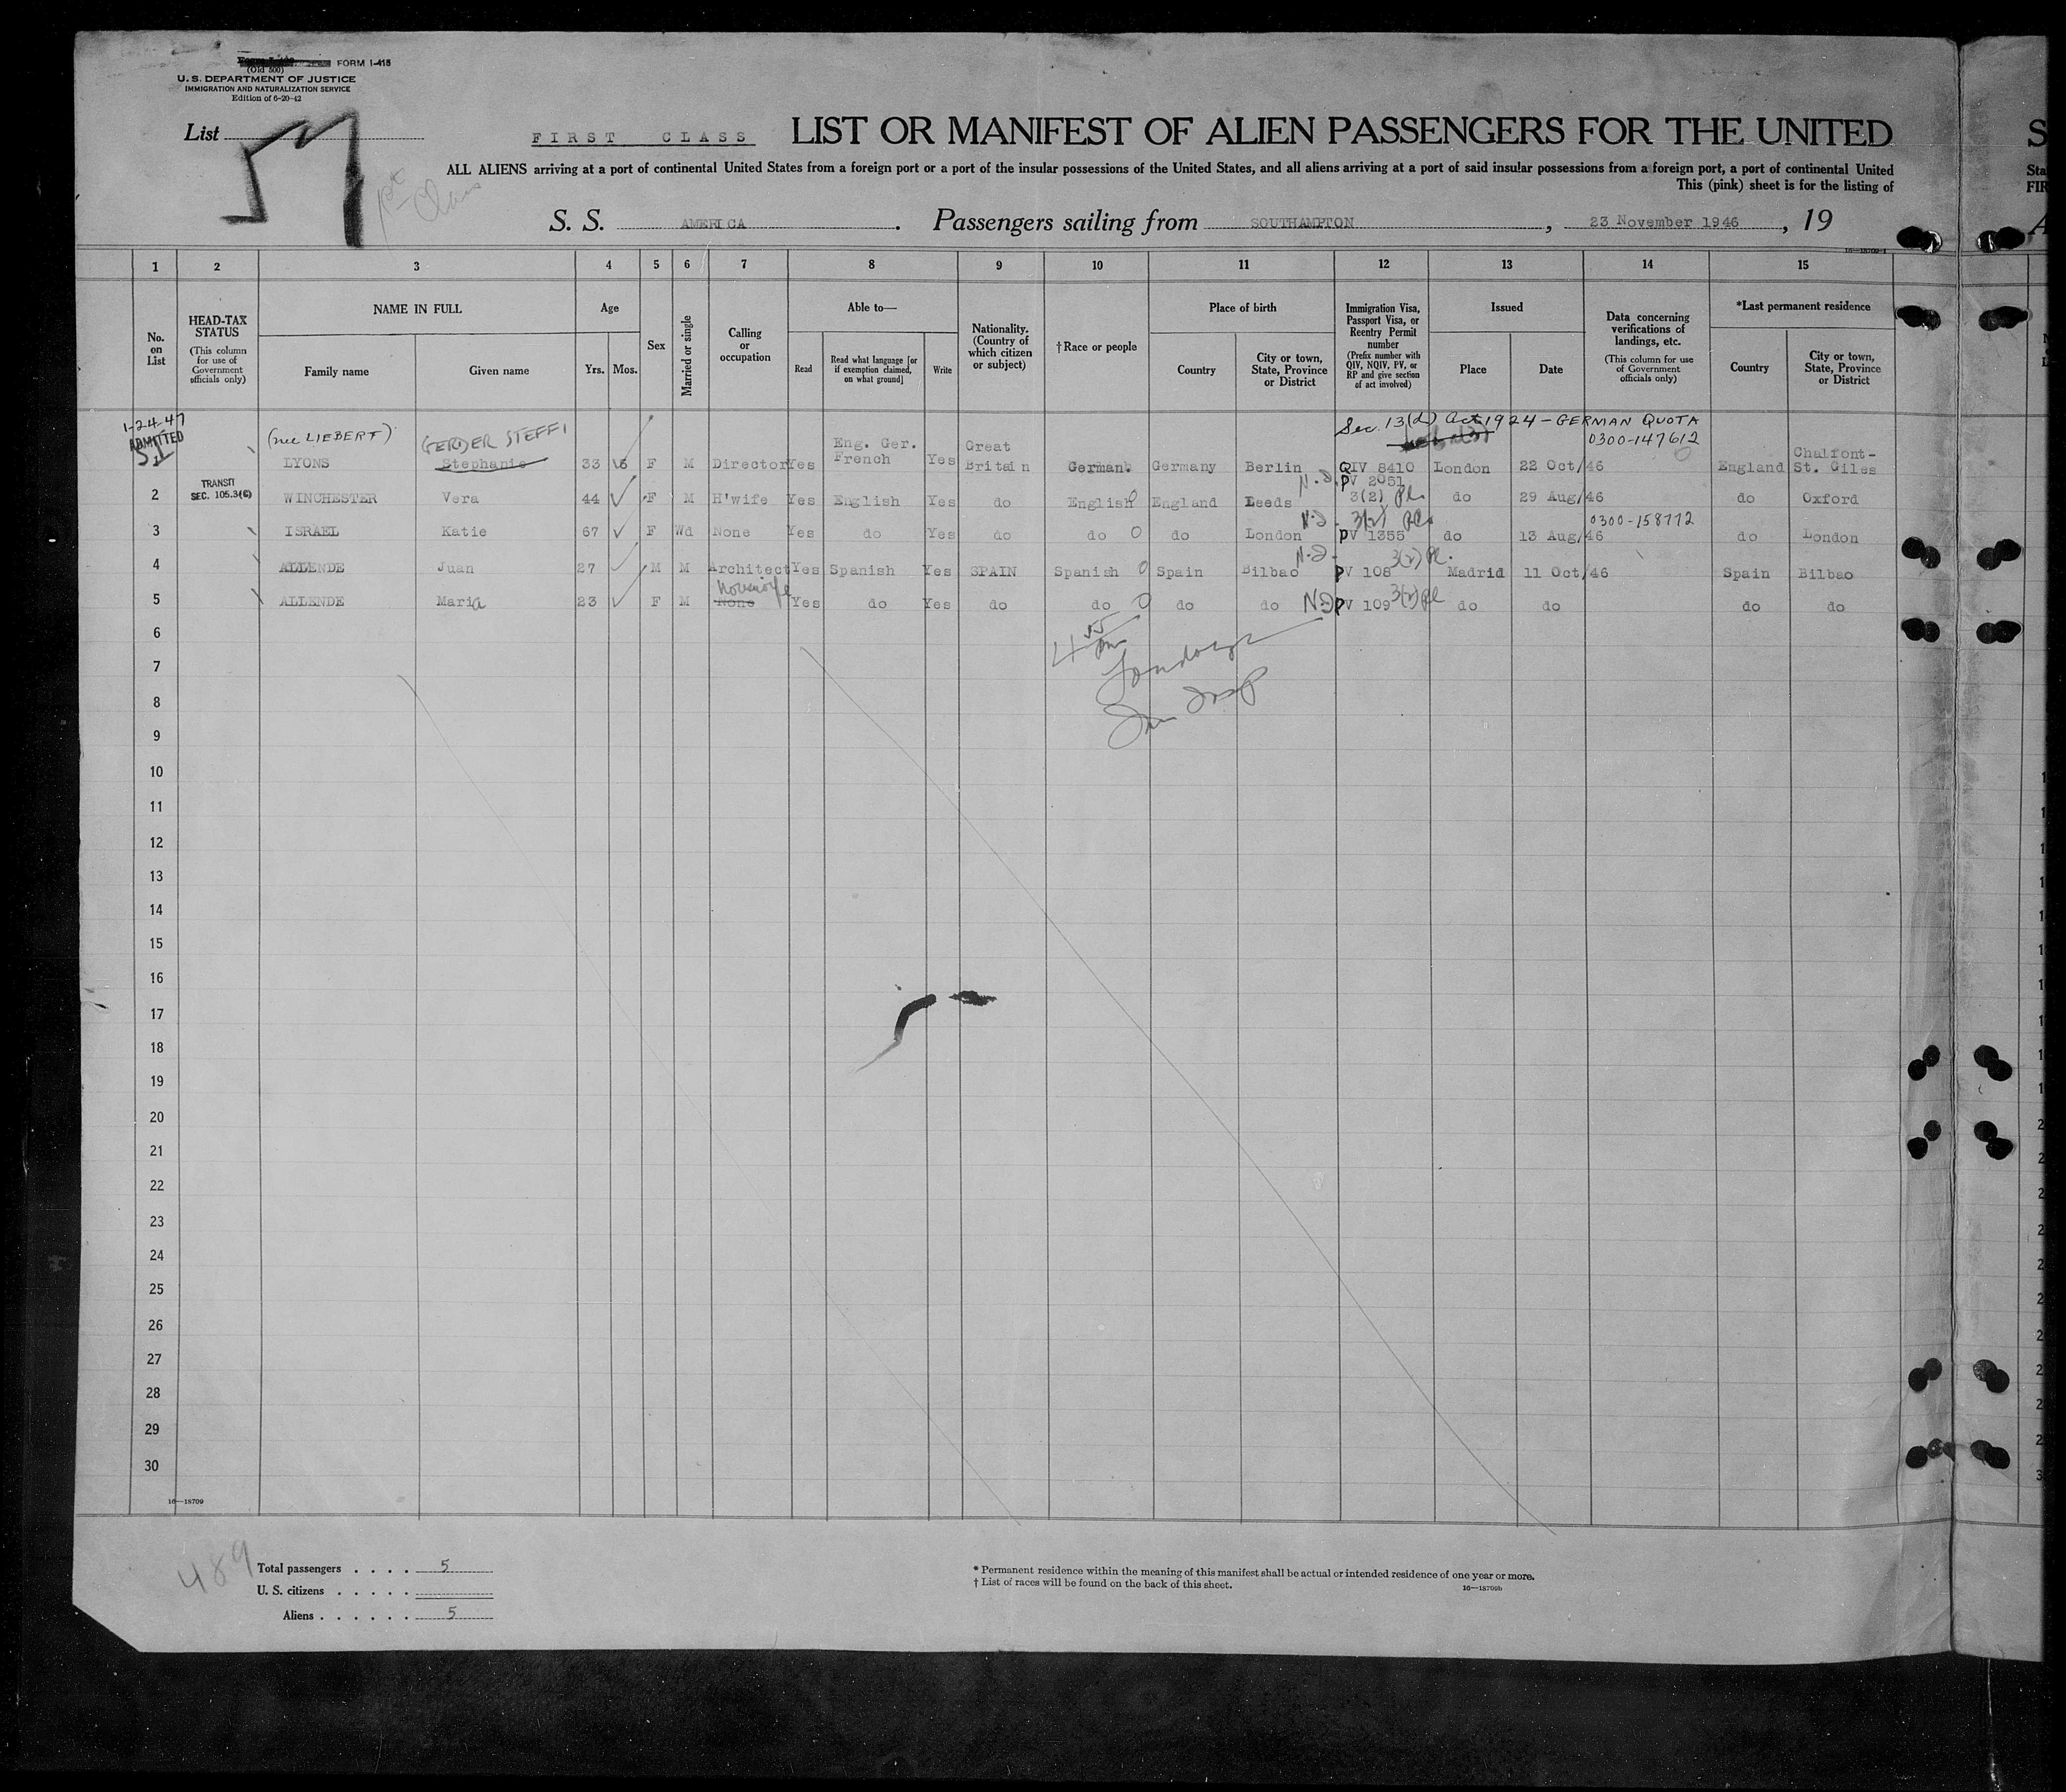 FORM I-415
(Old 500)
U. S. DEPARTMENT OF JUSTICE
IMMIGRATION AND NATURALIZATION SERVICE
Edition of 6-20-42
List 57
1st Class
FIRST CLASS LIST OR MANIFEST OF ALIEN PASSENGERS FOR THE UNITED
ALL ALIENS arriving at a port of continental United States from a foreign port or a port of the insular possessions of the United States, and all aliens arriving at a port of said insular possessions from a foreign port, a port of continental United
This (pink) sheet is for the listing of
S. S. AMERICA. Passengers sailing from SOUTHAMPTON, 23 November 1946, 19
16—18709-1
1 2 3 4 5 6 7 8 9 10 11 12 13 14 15
No. on List
HEAD-TAX STATUS
(This column for use of Government officials only)
NAME IN FULL
Family name Given name
Age
Yrs. Mos.
Sex
Married or single
Calling or occupation
Able to—
Read
Read what language [or if exemption claimed, on what ground]
Write
Nationality. (Country of which citizen or subject)
†Race or people
Place of birth
Country
City or town, State, Province or District
Immigration Visa, Passport Visa, or Reentry Permit number
(Prefix number with QIV, NQIV, PV, or RP and give section of act involved)
Issued
Place Date
Data concerning verifications of landings, etc.
(This column for use of Government officials only)
*Last permanent residence
Country
City or town, State, Province or District
1-24-47
ADMITTED
(nee LIEBERT) GERDER STEFFI
Sec. 13(d) Act 1924 - GERMAN QUOTA
0300-147612
LYONS Stephanie 33 F M Director Yes Eng. Ger. French Yes Great Britain German. Germany Berlin QIV 8410 London 22 Oct/46 England Chalfont-St. Giles
2 TRANSIT SEC. 105.3(C) WINCHESTER Vera 44 F M H'wife Yes English Yes do English England Leeds PV 2051 3(2) do 29 Aug/46 do Oxford
0300-158772
3 ISRAEL Katie 67 F Wd None Yes do Yes do do do London PV 1355 3(2) do 13 Aug/46 do London
4 ALLENDE Juan 27 M M Architect Yes Spanish Yes SPAIN Spanish Spain Bilbao PV 108 3(2) Madrid 11 Oct/46 Spain Bilbao
Housewife
5 ALLENDE Maria 23 F M None Yes do Yes do do do do ND PV 109 3(2) do do do do
6
7
8
9
10
11
12
13
14
15
16
17
18
19
20
21
22
23
24
25
26
27
28
29
30
16—18709
489
Total passengers . . . . 5
U. S. citizens . . . . .
Aliens . . . . . . 5
* Permanent residence within the meaning of this manifest shall be actual or intended residence of one year or more.
† List of races will be found on the back of this sheet.
16—18709b